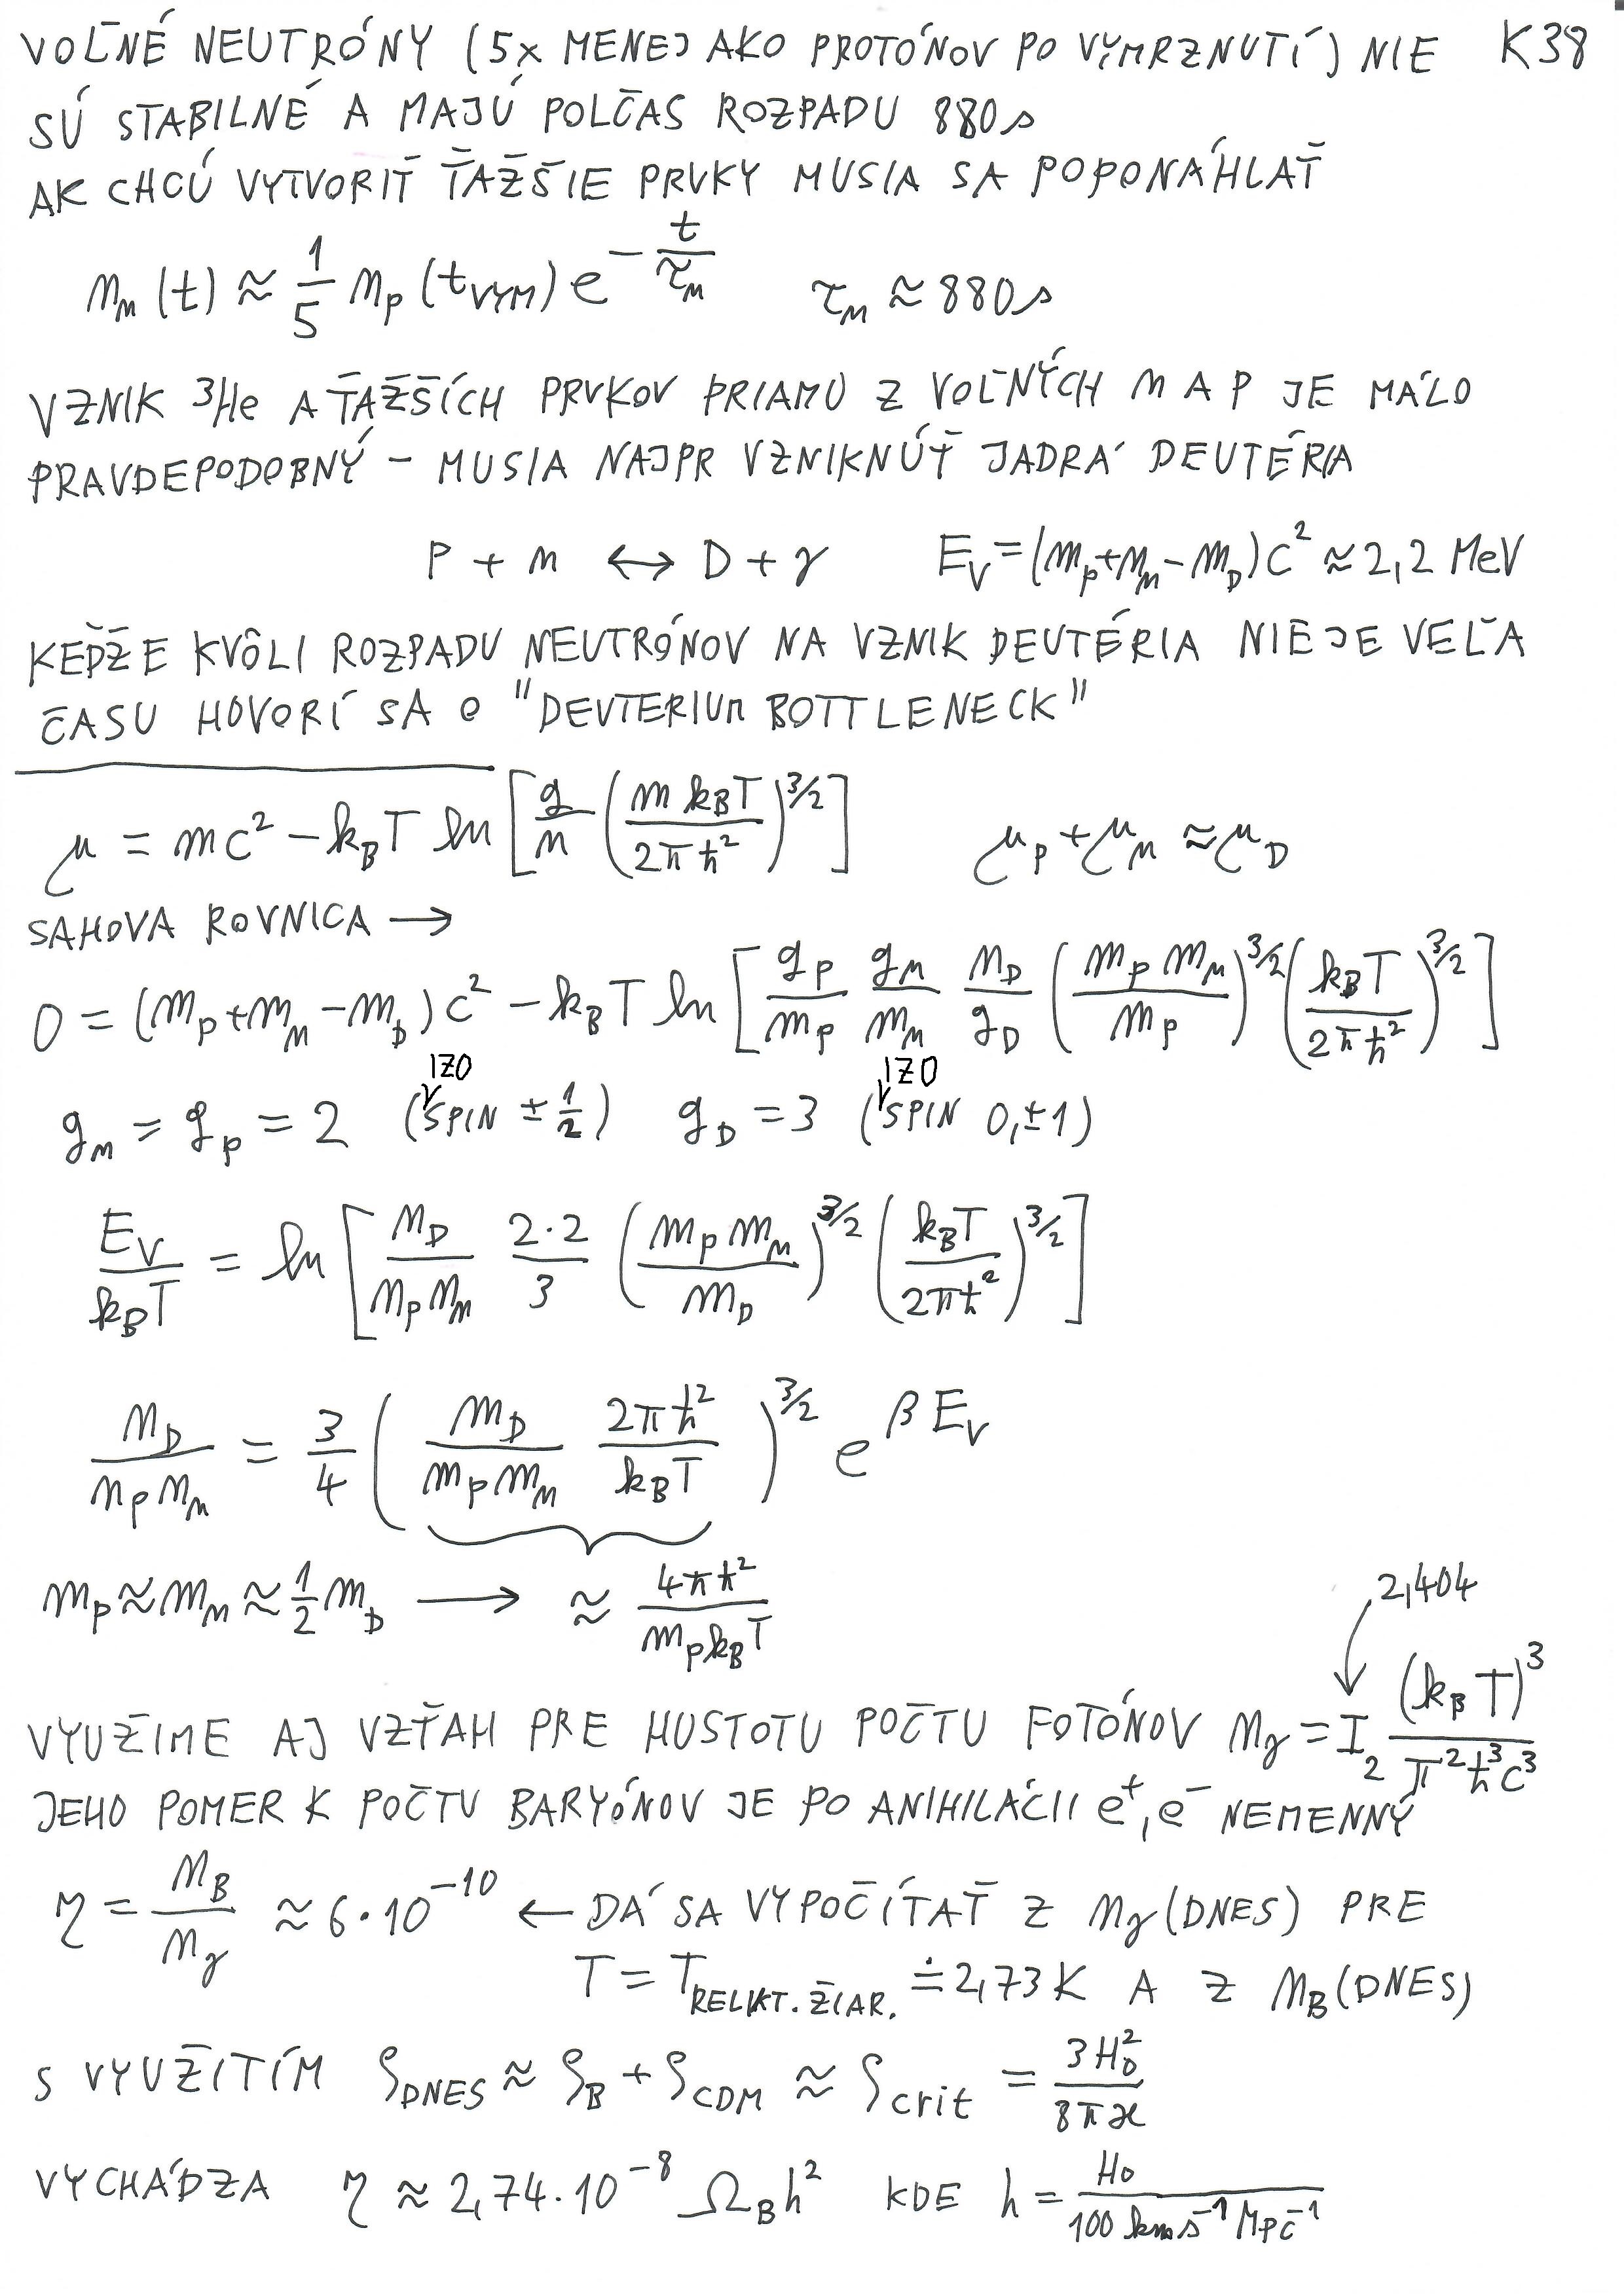 VOĽNÉ NEUTRÓNY (5x MENEJ AKO PROTÓNOV PO VYMRZNUTÍ) NIE K38
SÚ STABILNÉ A MAJÚ POLČAS ROZPADU 880s
AK CHCÚ VYTVORIŤ ŤAŽŠIE PRVKY MUSIA SA POPONÁHLAŤ
n_n(t) ≈ 1/5 n_p(t_VYM) e^(-t/τ_n) τ_n ≈ 880s
VZNIK ³He A ŤAŽŠÍCH PRVKOV PRIAMO Z VOĽNÝCH n A P JE MÁLO
PRAVDEPODOBNÝ - MUSIA NAJPR VZNIKNÚŤ JADRÁ DEUTÉRIA
P + n ↔ D + γ E_V = (m_p + m_n - m_D)c² ≈ 2,2 MeV
KEĎŽE KVÔLI ROZPADU NEUTRÓNOV NA VZNIK DEUTÉRIA NIE JE VEĽA
ČASU HOVORÍ SA O "DEUTERIUM BOTTLENECK"
μ = mc² - k_B T ln [g/n (m k_B T / 2πħ²)^(3/2)] μ_p + μ_n ≈ μ_D
SAHOVA ROVNICA →
0 = (m_p + m_n - m_D)c² - k_B T ln [g_p/n_p g_n/n_n n_D/g_D (m_p m_n / m_p)^(3/2) (k_B T / 2πħ²)^(3/2)]
g_n = g_p = 2 (IZOSPIN ± 1/2) g_D = 3 (IZOSPIN 0,±1)
E_V / k_B T = ln [n_D / n_p n_n 2·2/3 (m_p m_n / m_D)^(3/2) (k_B T / 2πħ²)^(3/2)]
n_D / n_p n_n = 3/4 (m_D / m_p m_n 2πħ² / k_B T)^(3/2) e^(βE_V)
m_p ≈ m_n ≈ 1/2 m_D → ≈ 4πħ² / m_p k_B T
2,404
VYUŽIME AJ VZŤAH PRE HUSTOTU POČTU FOTÓNOV n_γ = I_2 (k_B T)³ / π²ħ³c³
JEHO POMER K POČTU BARYÓNOV JE PO ANIHILÁCII e⁺, e⁻ NEMENNÝ
η = n_B / n_γ ≈ 6·10^(-10) ← DÁ SA VYPOČÍTAŤ Z n_γ(DNES) PRE
T = T_RELIKT. ŽIAR. ≐ 2,73 K A Z n_B(DNES)
S VYUŽITÍM ρ_DNES ≈ ρ_B + ρ_CDM ≈ ρ_crit = 3H_0² / 8πϰ
VYCHÁDZA η ≈ 2,74·10^(-8) Ω_B h² KDE h = H_0 / 100 km s⁻¹ Mpc⁻¹